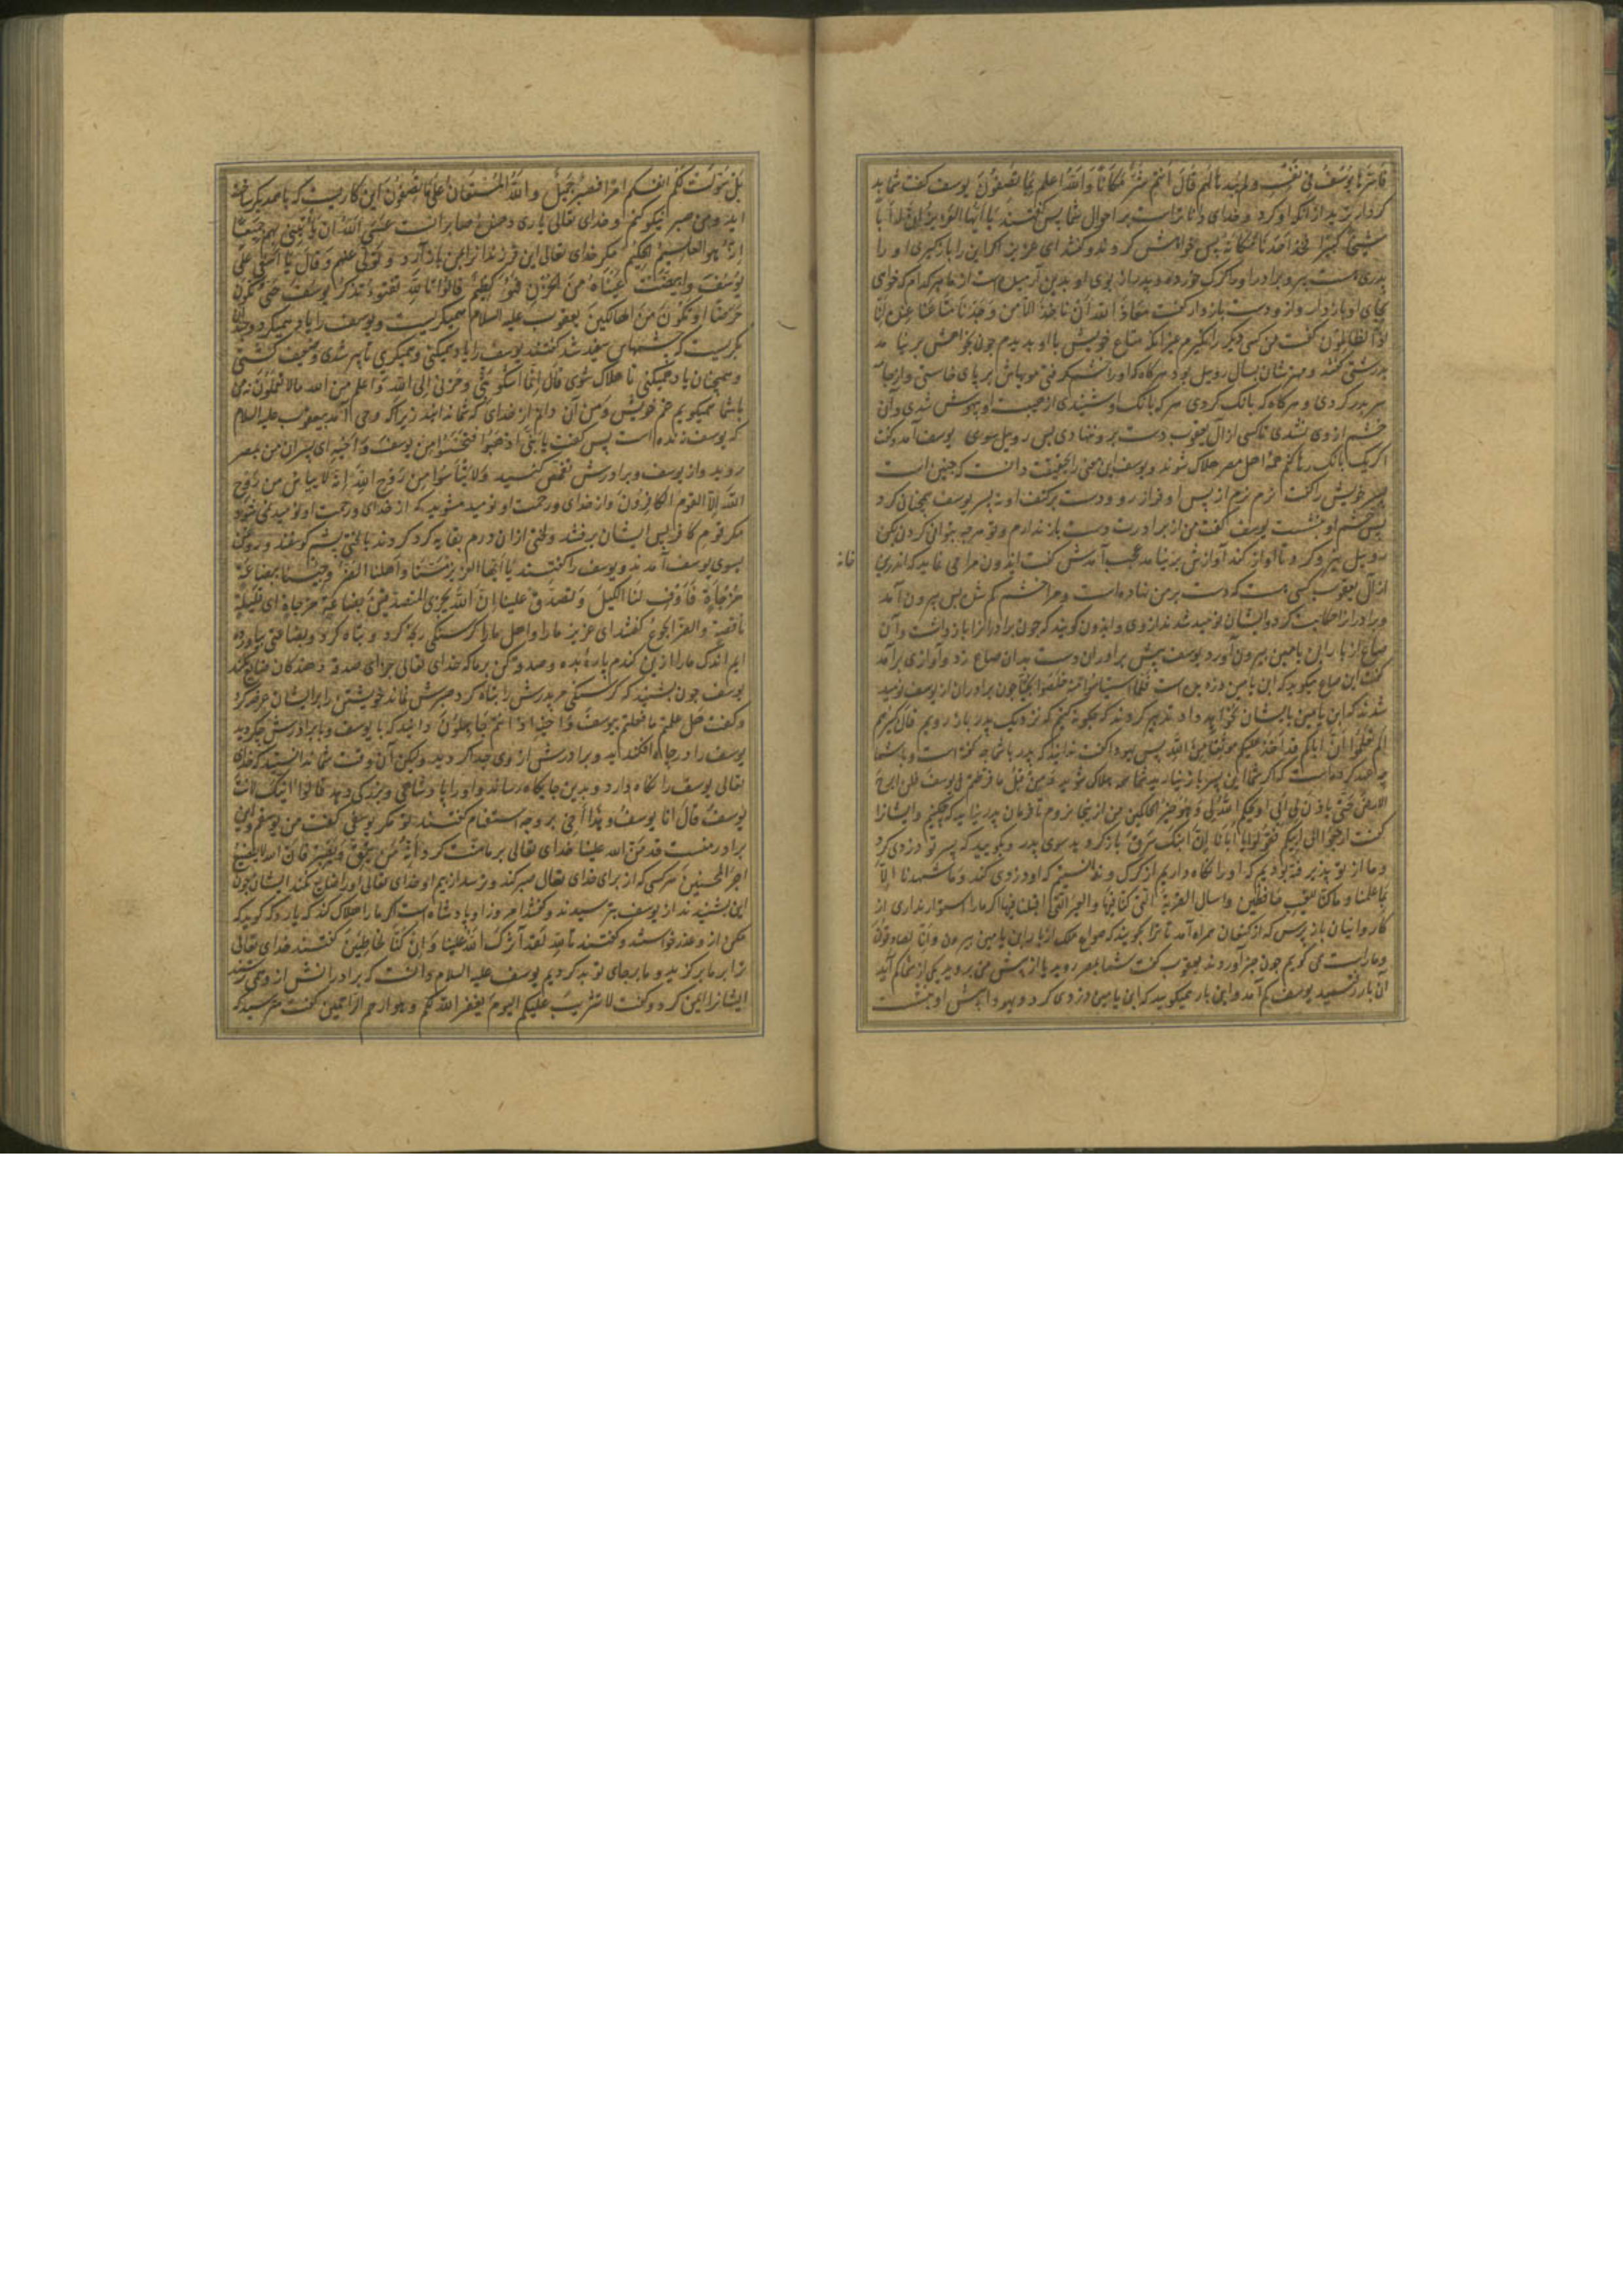 فَاَسَرَّهَا یُوسُفُ فی نَفْسِهِ ولم یُبدِها لَهُم قَالَ اَنتُم شَرٌّ مَکَانًا وَاَللهُ اعلم بِمَا تَصِفُونَ یوسف کفت شما بد
کردار تریداز انکه او کرد و خدای داناتراست بر احوال شما پس کفتند یَا اَیُّهَا العَزِیزُ اِنَّ لَهُ اَبًا
شَیخًا کَبِیرًا فَخُذ اَحَدَنَا مَکَانَهُ پس خواهش کردند و کفتند ای عزیز اکر این را بازکیری او را
پدری است پیر و برادر او را کرک خورده و پدر مان بوی او بدین آرمیده است از ما هر کدام که خوای
بجای او بازدار و از و دست بازدار کفت مَعَاذَ الله اَنْ نَاخُذَ اِلّا مَن وَجَدنَا مَتَاعَنَا عِندَهُ اِنَّا
اِذًا لَظَالِمُونَ کفت من کسی دیکر را نکیرم جز انکه متاع خویش با او بدیدم چون بخواهش بر نیامد
بدرشتی کفتند و مهترشان بسال روبیل بود هرکاه که اورا خشم کرفتی موی باش بر پای خاستی و از جامه
سر بدر کردی و هرکاه که بانک کردی هر که بانک او شنیدی از هیبت او بیهوش شدی و آن
خشم از وی نشدی تا کسی از آل یعقوب دست بر و ننهادی پس روبیل سوی یوسف آمد و کفت
اکر یک بانک زنم همه اهل مصر هلاک شوند و یوسف این معنی را بحقیقت دانست که چنین است
پسر خویش را کفت نرم نرم از پس او فراز رو و دست بر کتف او نه پسر یوسف همچنان کرد
پس خشم او بنشست یوسف کفت من از برادرت دست باز ندارم و تو هرچه بتوانی کردن بکن
روبیل نیرو کرد تا آواز کند آوازش برنیامد عجب آمدش کفت ایدون مرا می نماید که اندرین
خانه
از آل یعقوب کسی هست که دست بر من نهاده است و مرا خشم کم شد پس بیرون آمد
و برادران را حکایت کرد و ایشان نومید شدند از وی و ایدون کویند که چون برادر را باز داشت و آن
صاع از بار ابن یامین بیرون آورد یوسف پیش برادران دست بدان صاع زد و آوازی برآمد
کفت این صاع میکوید که ابن یامین دزدیده است فَلَمّا استَیئَسُوا مِنهُ خَلَصُوا نَجِیًّا چون برادران از یوسف نومید
شدند که ابن یامین بایشان نخواهد داد تدبیر کردند که چکونه کنیم که نزدیک پدر باز رویم قَالَ کَبِیرُهم
اَلَم تَعلَمُوا اَنَّ اَبَاکُم قَد اَخَذَ عَلَیکُم مَوثِقًا مِنَ الله پس یهودا کفت ندانید که پدر با شما چه کفته است و با شما
چه عهد کرده است که اکر شما این پسر باز نیارید شما همه هلاک شوید وَمِن قَبلُ مَا فَرَّطتُم فی یوسفَ فَلَن اَبرَحَ
الارضَ حَتّی یَاذَنَ لی اَبی اَو یَحکُمَ اللهُ لی وَهُوَ خَیرُ الحاکمین من از ینجا نروم تا فرمان پدر نیاید که چکنیم و ایشانرا
کفت اِرجِعُوا اِلی اَبیکُم فَقُولُوا یَا اَبَانَا اِنَّ ابنَکَ سَرَقَ بازکردید سوی پدر و بکویید که پسر تو دزدی کرد
و ما از تو پذیرفته بودیم که او را نکاه داریم از کرک و ندانستیم که او دزدی کند وَمَا شَهِدنَا اِلّا
بِمَا عَلِمنَا وَمَا کُنَّا لِلغَیبِ حَافِظین وَاسئَلِ القَریَةَ الَّتی کُنَّا فِیهَا وَالعِیرَ الَّتی اَقبَلنَا فِیهَا اکر ما را استوار نداری از
کاروانیان باز پرس که از کنعان همراه آمد تا ترا بکویند که صواع ملک از بار ابن یامین بیرون وَاِنَّا لَصَادِقُونَ
و ما راست می کویم چون خبر آوردند یعقوب کفت شما بمصر روید یا از پیش من بروید یکی از شما کم آید
آن بار رفتید یوسف کم آمد و این بار میکویید که ابن یامین دزدی کرد و یهودا پیش او بنشست
بَل سَوَّلَت لَکُم اَنفُسُکُم اَمرًا فَصَبرٌ جَمِیلٌ وَاللهُ المُستَعَانُ عَلی مَا تَصِفُونَ این کاریست که با همدیکر ساخته
اید و من صبر نیکو کنم و خدای تعالی یاری دهنده صابرانست عَسَی اللهُ اَن یَاتِیَنی بِهِم جَمِیعًا
اِنَّهُ هُوَ العَلِیمُ الحَکِیمُ مکر خدای تعالی این فرزندانرا بمن باز آرد وَتَوَلّی عَنهُم وَقَالَ یَا اَسَفی عَلی
یُوسُفَ وَابیَضَّت عَینَاهُ مِنَ الحُزنِ فَهُوَ کَظِیمٌ قَالُوا تَاللهِ تَفتَؤُ تَذکُرُ یُوسُفَ حَتّی تَکُونَ
حَرَضًا اَو تَکُونَ مِنَ الهَالِکِینَ یعقوب علیه السلام همیکریست و یوسف را یاد همیکرد و چندان
بکریست که چشمهاش سپید شد کفتند یوسف را یاد میکنی و میکریی تا پیر شدی و ضعیف کشتی
و همچنان یاد همیکنی تا هلاک شوی قَالَ اِنَّمَا اَشکُو بَثّی وَحُزنی اِلَی اللهِ وَاَعلَمُ مِنَ اللهِ مَالَا تَعلَمُونَ نه من
باشما همیکویم غم خویش و من آن دانم از خدای که شما ندانید زیراکه وحی آمد بیعقوب علیه السلام
که یوسف زنده است پس کفت یَا بَنِیَّ اذهَبُوا فَتَحَسَّسُوا مِن یُوسُفَ وَاَخِیهِ ای پسران من بمصر
روید و از یوسف و برادرش تفحص کنید وَلَا تَیأَسُوا مِن رَوحِ اللهِ اِنَّهُ لَا یَیأَسُ مِن رَوحِ
اللهِ اِلَّا القَومُ الکَافِرُونَ و از خدای و رحمت او نومید مشوید که از خدای و رحمت او نومید نمی شود
مکر قوم کافر پس ایشان برفتند و لختی ازان درم بقایه کرد کردند با لختی پشم کوسفند و روغن
بسوی یوسف آمدند و یوسف را کفتند یَا اَیُّهَا العَزِیزُ مَسَّنَا وَاَهلَنَا الضُّرُّ وَجِئنَا بِبِضَاعَةٍ
مُزجَاةٍ فَاَوفِ لَنَا الکَیلَ وَتَصَدَّق عَلَینَا اِنَّ اللهَ یَجزِی المُتَصَدِّقِینَ بِضَاعَةٍ مُزجَاةٍ ای قَلِیلَةٍ
نَاقِصَةٍ والضرّ الجوعُ کفتند ای عزیز ما را و اهل ما را کرسنکی رنجه کرد و تباه کرد و بضاعتی بیاورده
ایم اندک ما را ازین کندم پارهٔ بده و صدقه کن بر ما که خدای تعالی جزای صدقه دهندکان ضایع نکند
یوسف چون بشنید که کرسنکی مر پدرش را تباه کرد صبرش نماند خویشتن را بر ایشان عرضه کرد
و کفت هَل عَلِمتُم مَا فَعَلتُم بِیُوسُفَ وَاَخِیهِ اِذ اَنتُم جَاهِلُونَ دانید که با یوسف و با برادرش چکردید
یوسف را در چاه افکندید و برادرش از وی جدا کردید ولیکن آن وقت شما ندانستید که خدای
تعالی یوسف را نکاه دارد و بدین جایکاه رساند و او را پادشاهی و بزرکی دهد قَالُوا اَئِنَّکَ لَاَنتَ
یُوسُفُ قَالَ اَنَا یُوسُفُ وَهٰذَا اَخی بر وجه استفهام کفتند تو مکر یوسفی کفت من یوسفم و این
برادر منست قَد مَنَّ اللهُ عَلَینَا خدای تعالی بر ما منت کرد اِنَّهُ مَن یَتَّقِ وَیَصبِر فَاِنَّ اللهَ لَا یُضِیعُ
اَجرَ المُحسِنِینَ هر کسی که از برای خدای تعالی صبر کند و ترسد از بیم او خدای تعالی او را ضایع نکند ایشان چون
این بشنیدند از یوسف بترسیدند و کفتند امروز او پادشاه است اکر ما را هلاک کند که یارد که کوید که
مکن از و عذر خواستند و کفتند تَاللهِ لَقَد آثَرَکَ اللهُ عَلَینَا وَاِن کُنَّا لَخَاطِئِینَ کفتند خدای تعالی
ترا بر ما برکزید و ما بر جای تو بد کردیم یوسف علیه السلام دانست که برادرانش از وی همی ترسند
ایشانرا ایمن کرد و کفت لَا تَثرِیبَ عَلَیکُمُ الیَومَ یَغفِرُ اللهُ لَکُم وَهُوَ اَرحَمُ الرَّاحِمِینَ کفت مترسید که